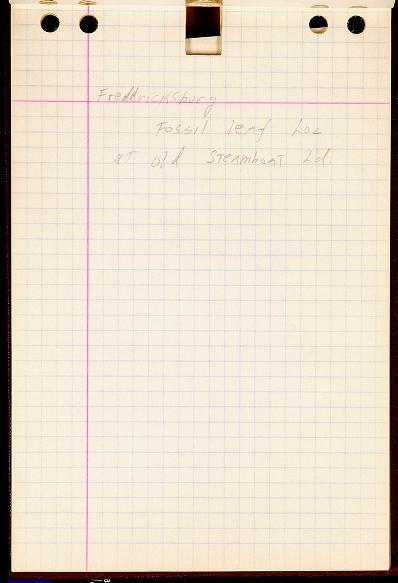 Freddricksburg
Fossil leaf Loc
at old Steamboat Ld.